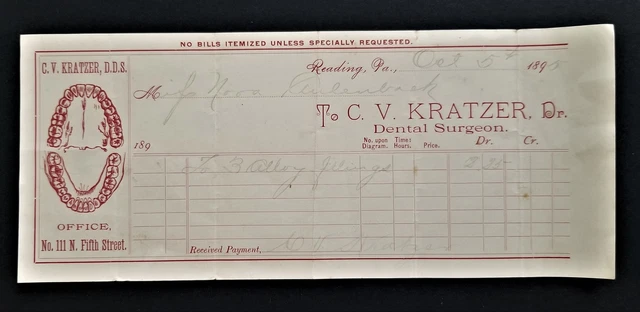 NO BILLS ITEMIZED UNLESS SPECIALLY REQUESTED.
C. V. KRATZER, D.D.S.
Reading, Pa., Oct 5th 189
Miss Nora
To C. V. KRATZER, Dr.
Dental Surgeon.
189
No. upon Diagram. Time: Hours. Price. Dr. Cr.
To 3 Alloy fillings
OFFICE,
No. 111 N. Fifth Street.
Received Payment, C. V. Kratzer